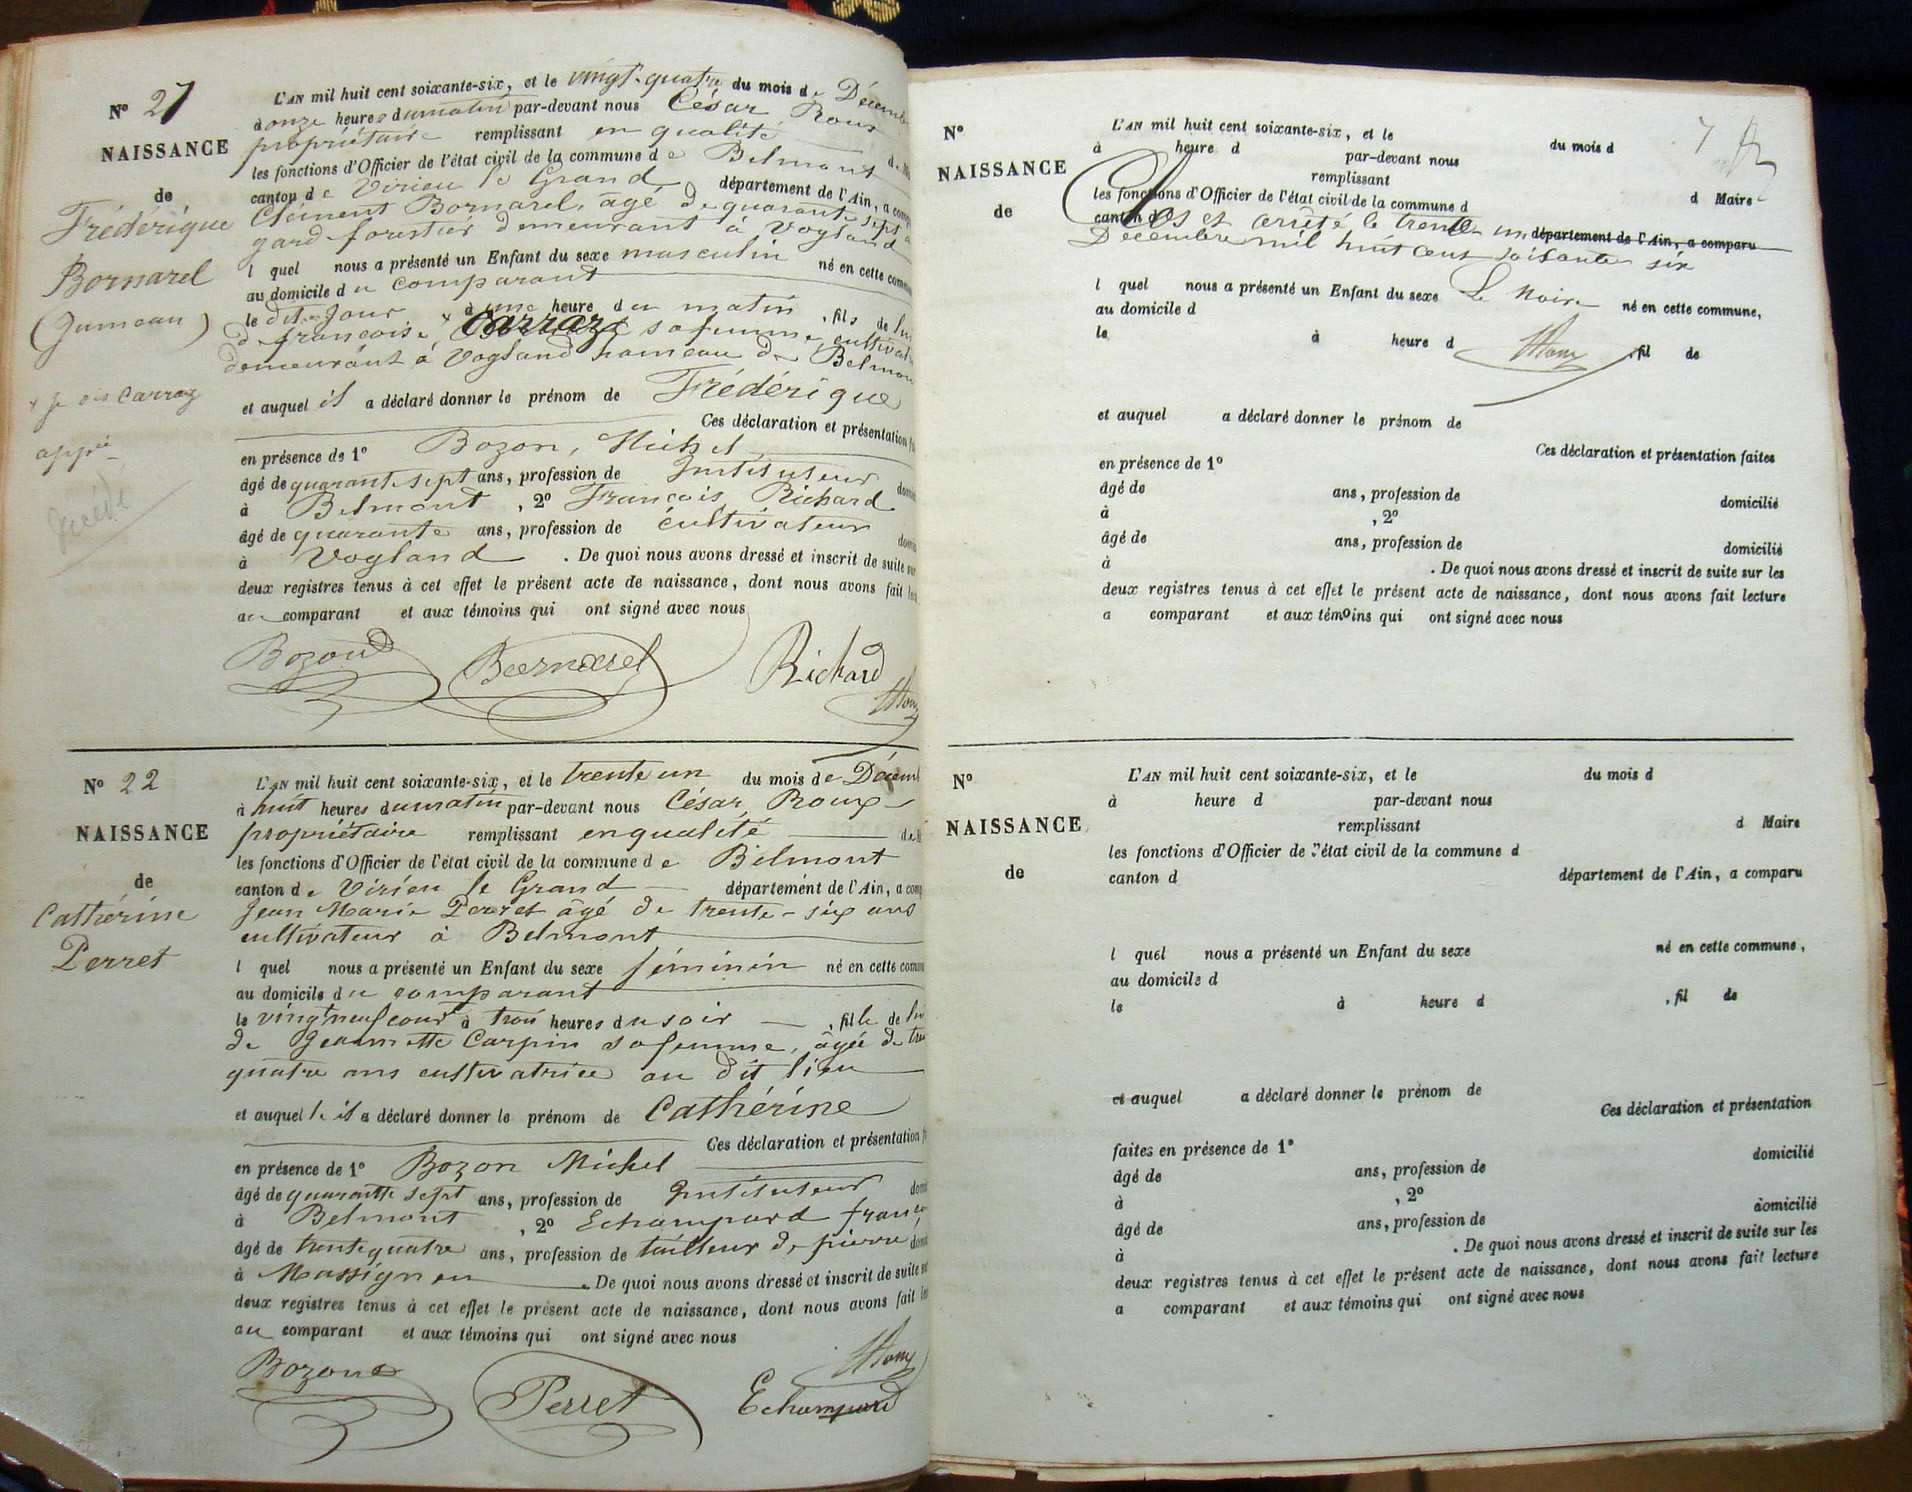 N° 21
NAISSANCE
de
Frédérique
Bornarel
(Jumeau)
x je dis Carraz
appré
L'AN mil huit cent soixante-six, et le vingt-quatre du mois de Décemb
à onze heures du matin par-devant nous César Roux
propriétaire remplissant en qualité de
les fonctions d'Officier de l'état civil de la commune de Belmont
canton de Virieu le Grand département de l'Ain, a comp
Clément Bornarel, âgé de quarante sept a
gard forestier demeurant à Vogland
l quel nous a présenté un Enfant du sexe masculin né en cette commu
au domicile du comparant
le dit jour à une heure du matin, fils de lui
de françoise x Carraz sa femme, cultivat
demeurant à Vogland hameau de Belmon
et auquel il a déclaré donner le prénom de Frédérique
Ces déclaration et présentation f
en présence de 1° Bozon, Michel
âgé de quarante sept ans, profession de Instituteur domi
à Belmont, 2° François Richard
âgé de quarante ans, profession de cultivateur domi
à Vogland. De quoi nous avons dressé et inscrit de suite sur
deux registres tenus à cet effet le présent acte de naissance, dont nous avons fait lec
au comparant et aux témoins qui ont signé avec nous
Bozon Bornarel Richard
N° 22
NAISSANCE
de
Cathérine
Perret
L'AN mil huit cent soixante-six, et le trente un du mois de Décemb
à huit heures du matin par-devant nous César Roux
propriétaire remplissant en qualité de
les fonctions d'Officier de l'état civil de la commune de Belmont
canton de Virieu le Grand département de l'Ain, a comp
Jean Marie Perret âgé de trente-six ans
cultivateur à Belmont
l quel nous a présenté un Enfant du sexe féminin né en cette commu
au domicile du comparant
le vingt neuf cour à trois heures du soir, fille de lui
de Jeannette Carpin sa femme, âgée de tre
quatre ans cultivatrice au dit lieu
et auquel le il a déclaré donner le prénom de Cathérine
Ces déclaration et présentation f
en présence de 1° Bozon Michel
âgé de quarante sept ans, profession de Instituteur domi
à Belmont, 2° Echampard franç
âgé de trente quatre ans, profession de tailleur de pierre domi
à Massignieu. De quoi nous avons dressé et inscrit de suite sur
deux registres tenus à cet effet le présent acte de naissance, dont nous avons fait lec
au comparant et aux témoins qui ont signé avec nous
Bozon Perret Echampard
N°
NAISSANCE
de
7
L'AN mil huit cent soixante-six, et le du mois d
à heure d par-devant nous
remplissant d Maire
les fonctions d'Officier de l'état civil de la commune d
canton d département de l'Ain, a comparu
Clos et arrêté le trente un
Décembre mil huit cent soixante six
l quel nous a présenté un Enfant du sexe né en cette commune,
Le Maire
au domicile d
le à heure d , fil de
et auquel a déclaré donner le prénom de
Ces déclaration et présentation faites
en présence de 1°
âgé de ans, profession de domicilié
à , 2°
âgé de ans, profession de domicilié
à . De quoi nous avons dressé et inscrit de suite sur les
deux registres tenus à cet effet le présent acte de naissance, dont nous avons fait lecture
a comparant et aux témoins qui ont signé avec nous
N°
NAISSANCE
de
L'AN mil huit cent soixante-six, et le du mois d
à heure d par-devant nous
remplissant d Maire
les fonctions d'Officier de l'état civil de la commune d
canton d département de l'Ain, a comparu
l quel nous a présenté un Enfant du sexe né en cette commune,
au domicile d
le à heure d , fil de
et auquel a déclaré donner le prénom de
Ces déclaration et présentation
faites en présence de 1°
âgé de ans, profession de domicilié
à , 2°
âgé de ans, profession de domicilié
à . De quoi nous avons dressé et inscrit de suite sur les
deux registres tenus à cet effet le présent acte de naissance, dont nous avons fait lecture
a comparant et aux témoins qui ont signé avec nous